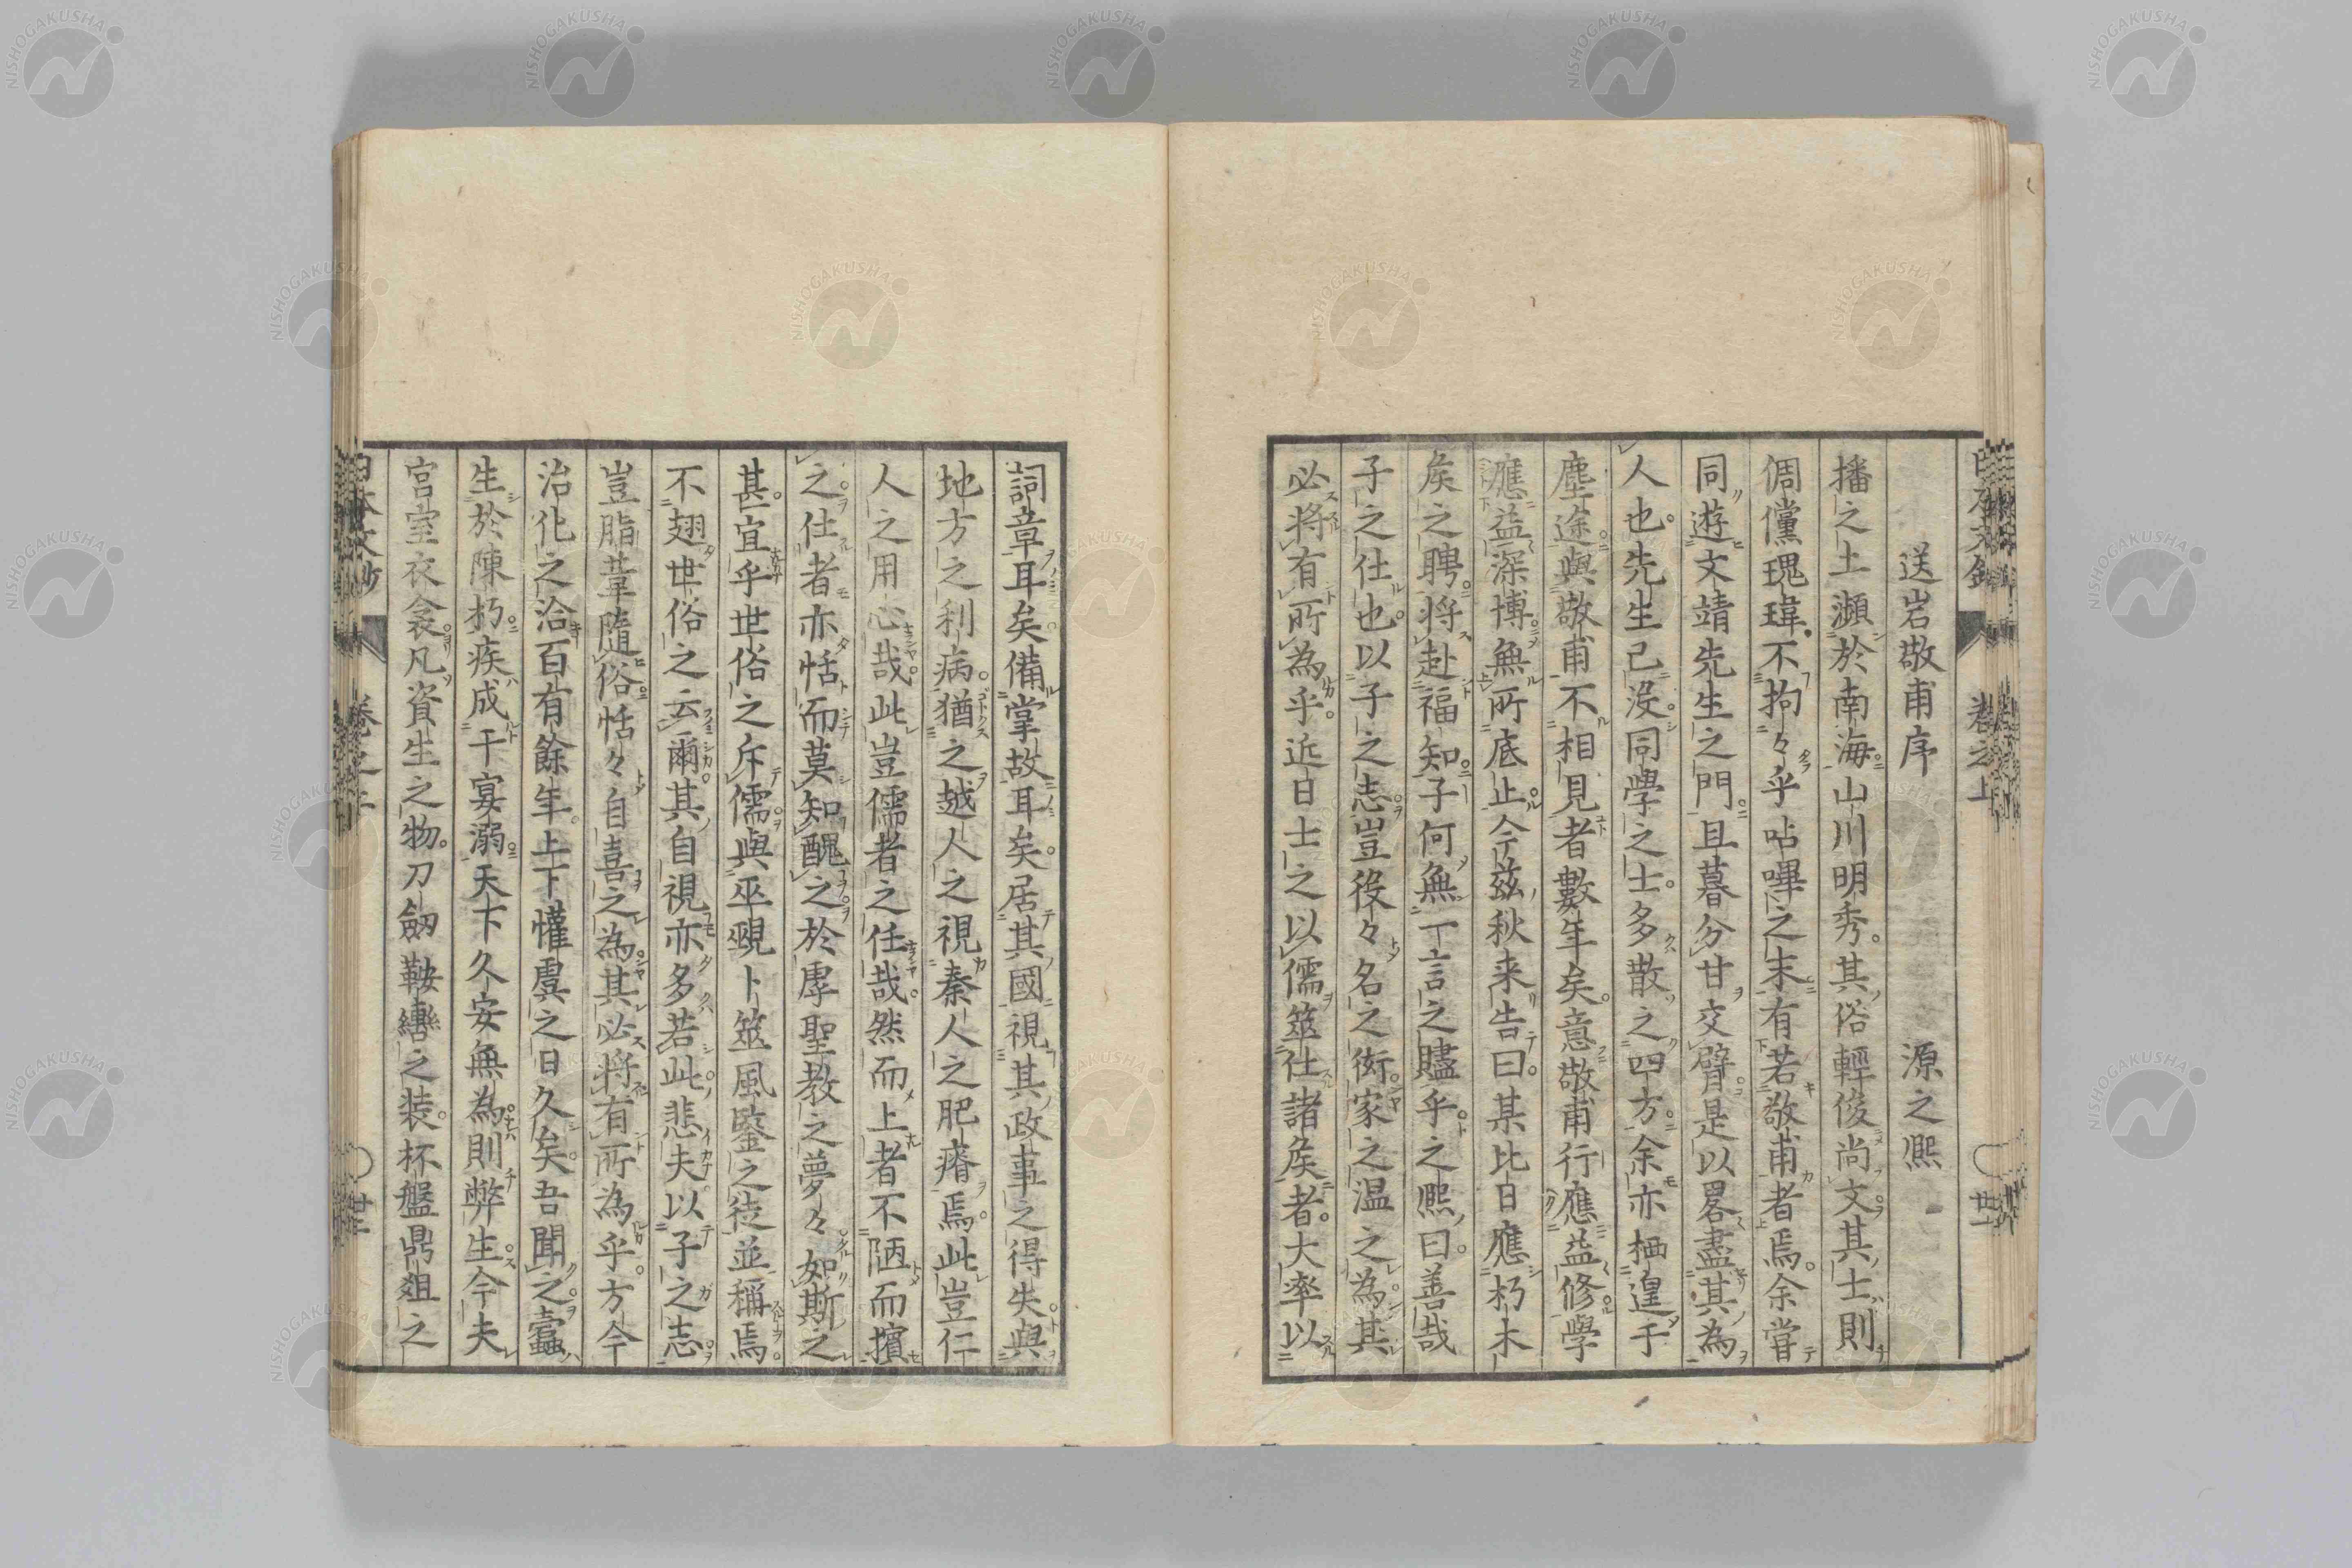 送岩敬甫序　源之熈
播之土瀕於南海山川明秀。其俗輕俊尚文其士則
倜儻瑰瑋不拘々乎呫嗶之末有若敬甫者焉。余嘗
同遊文靖先生之門且暮分甘交臂是以畧盡其為
人也。先生已没同學之士。多散之四方余亦栖遑于
塵途與敬甫不相見者數年矣。意敬甫行應益修學
應益深博無所底止今茲秋来告曰。某比日應朽木
矦之聘将赴福知子何無一言之贐乎。之熈曰。善哉
子之仕也以子之志豈役々名之衒家之温之為其
必将有所為乎。近日士之以儒筮仕諸矦者。大率以
詞章耳矣備掌故耳矣。居其國視其政事之得失與
地方之利病。猶之越人之視秦人之肥瘠焉。此豈仁
人之用心哉。此豈儒者之任哉。然而上者不陋而擯
之仕者亦恬而莫知醜之於厚聖教之夢々如斯之
甚。宜乎世俗之斥儒與巫覡卜筮風鑒之徒並稱焉。
不翅世俗之云爾。其自視亦多若此。悲夫以子之志
豈脂韋隨俗恬々自喜之為其必将有所為乎。方今
治化之洽百有餘年。上下懽虞之日久矣。吾聞之蠹
生於陳朽疾成于宴溺天下久安無為則弊生今夫
宮室衣衾凡資生之物。刀劔鞍轡之装。杯盤鼎爼之
卷之上
日本文抄
NISHOGAKUSHA